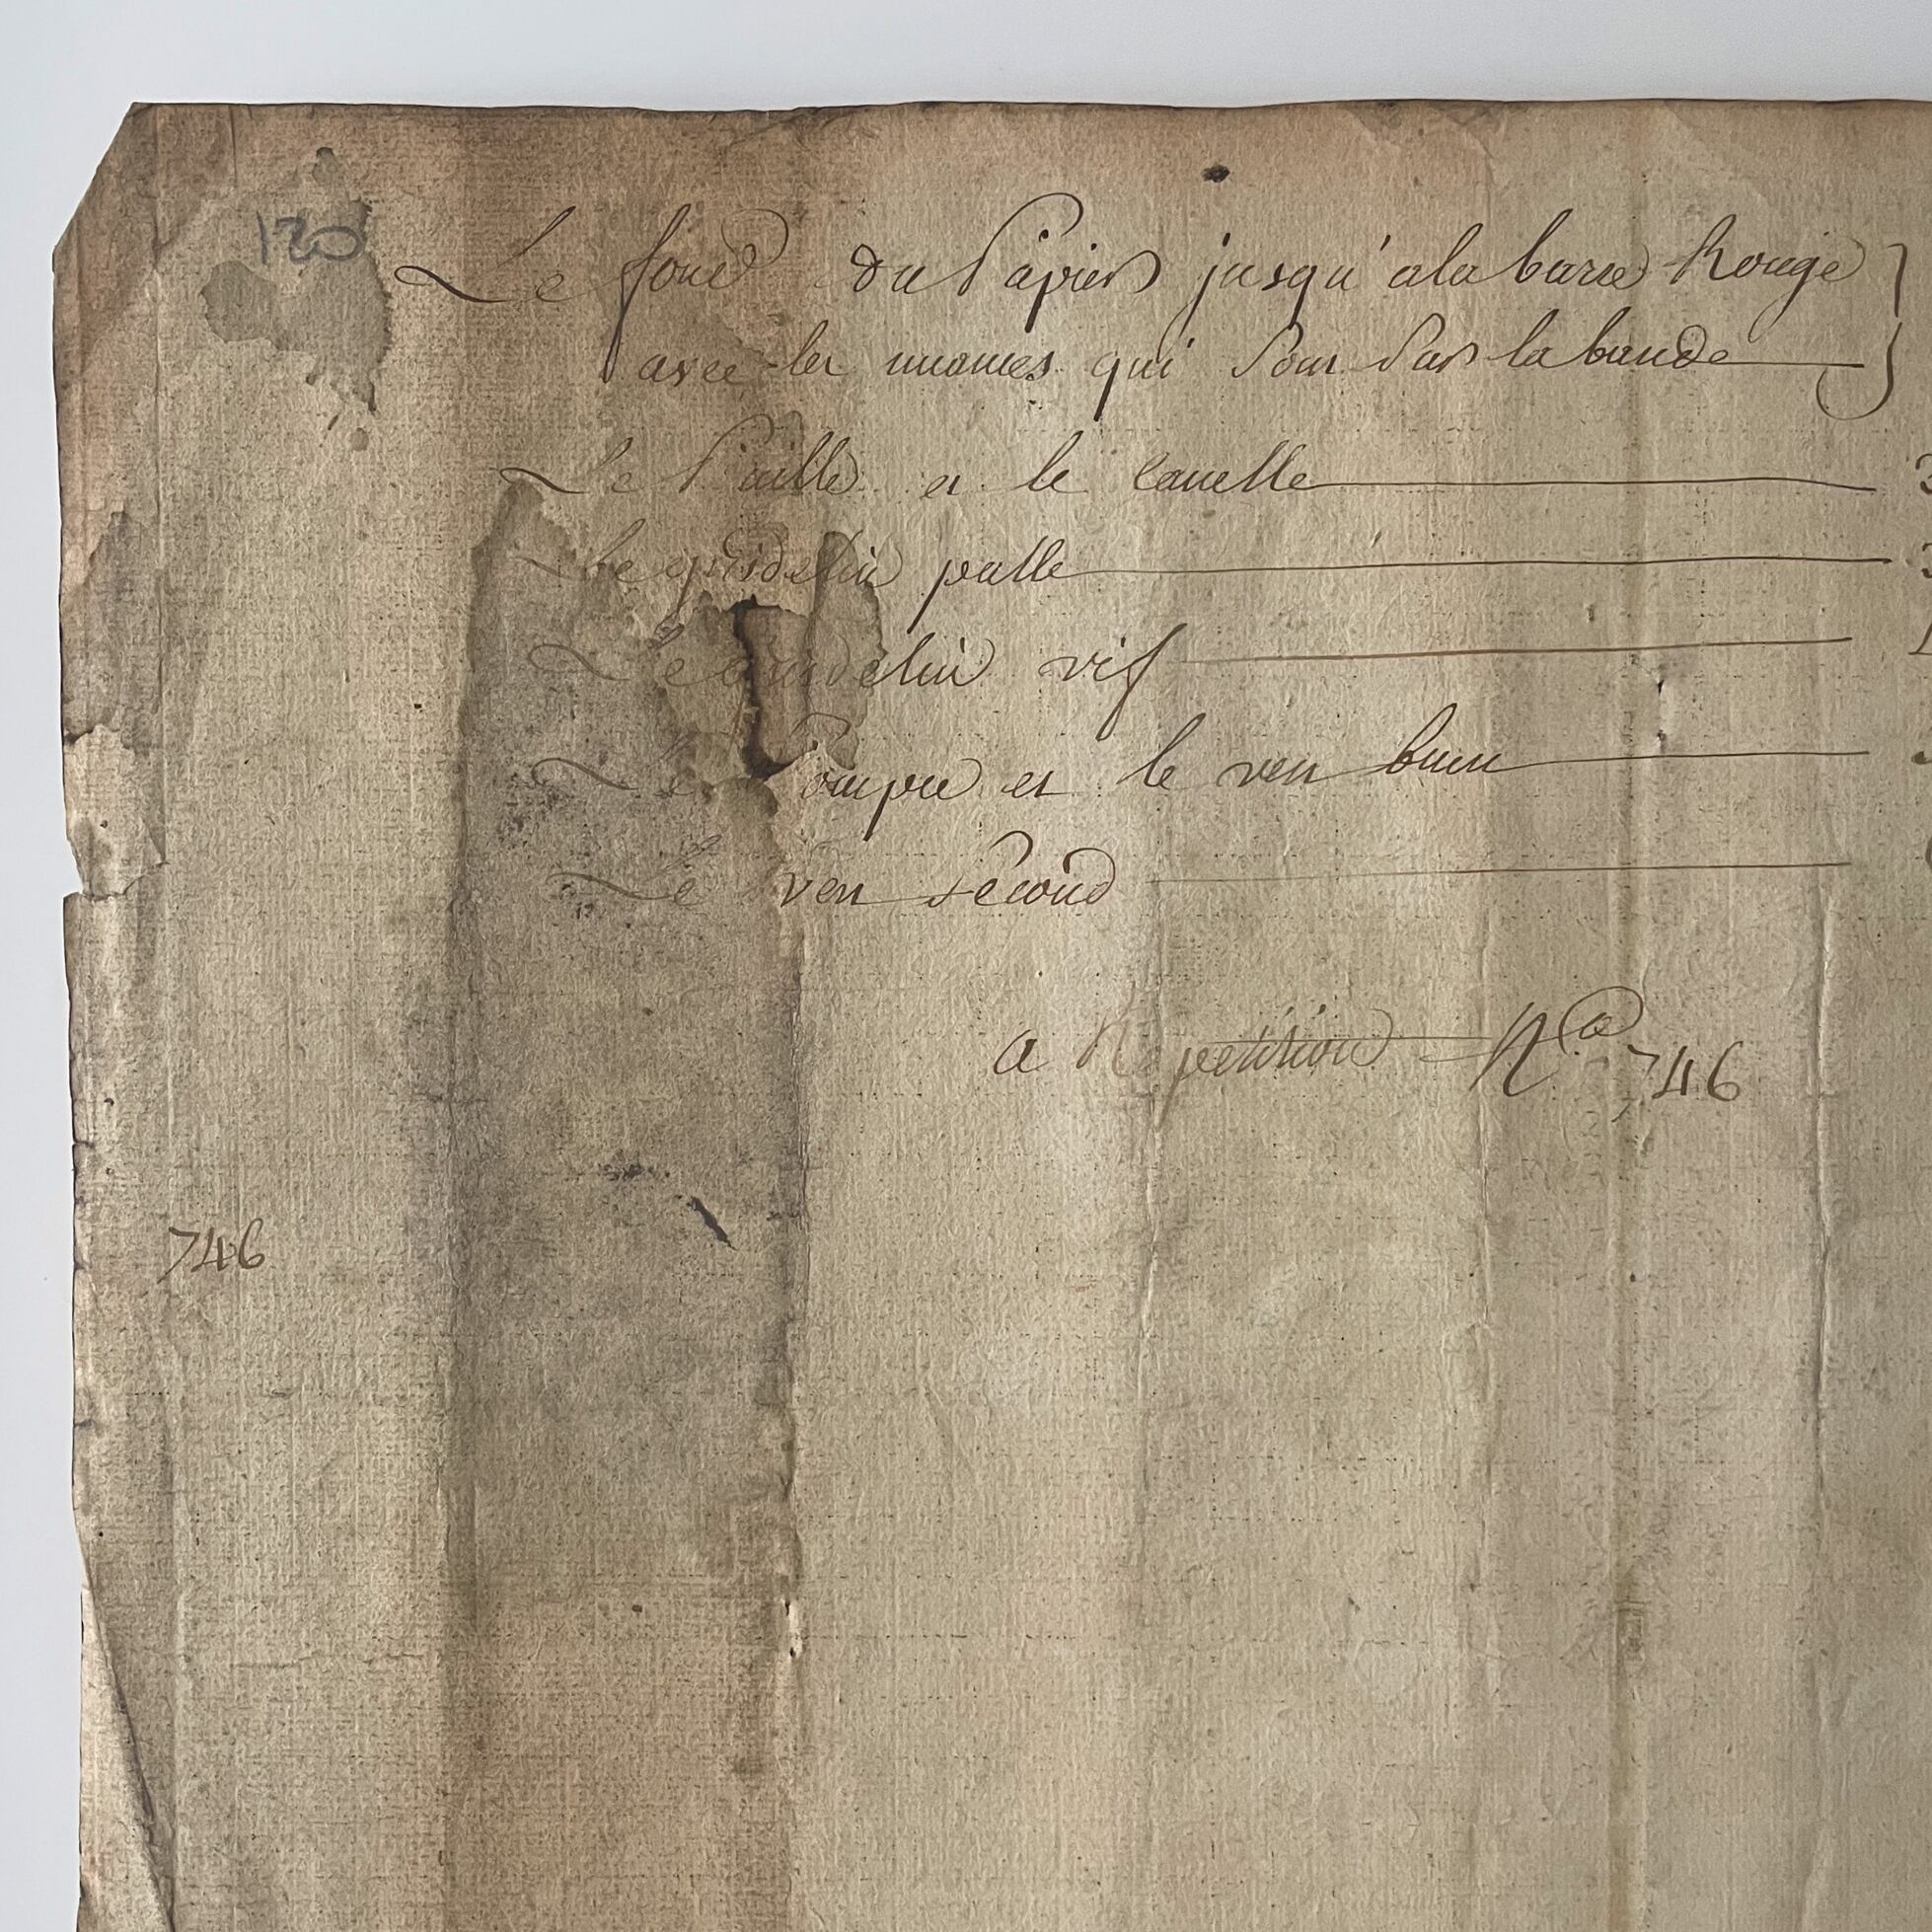 120
Le fond du Papier jusqu'a la barre Rouge
avec les nuances qui Sont Sur la bande
Le Paille et le Canelle
Le gridelin palle
Le gridelin vif
Le Pourpre et le vert brun
Le vert second
a Repetition N.o 746
746